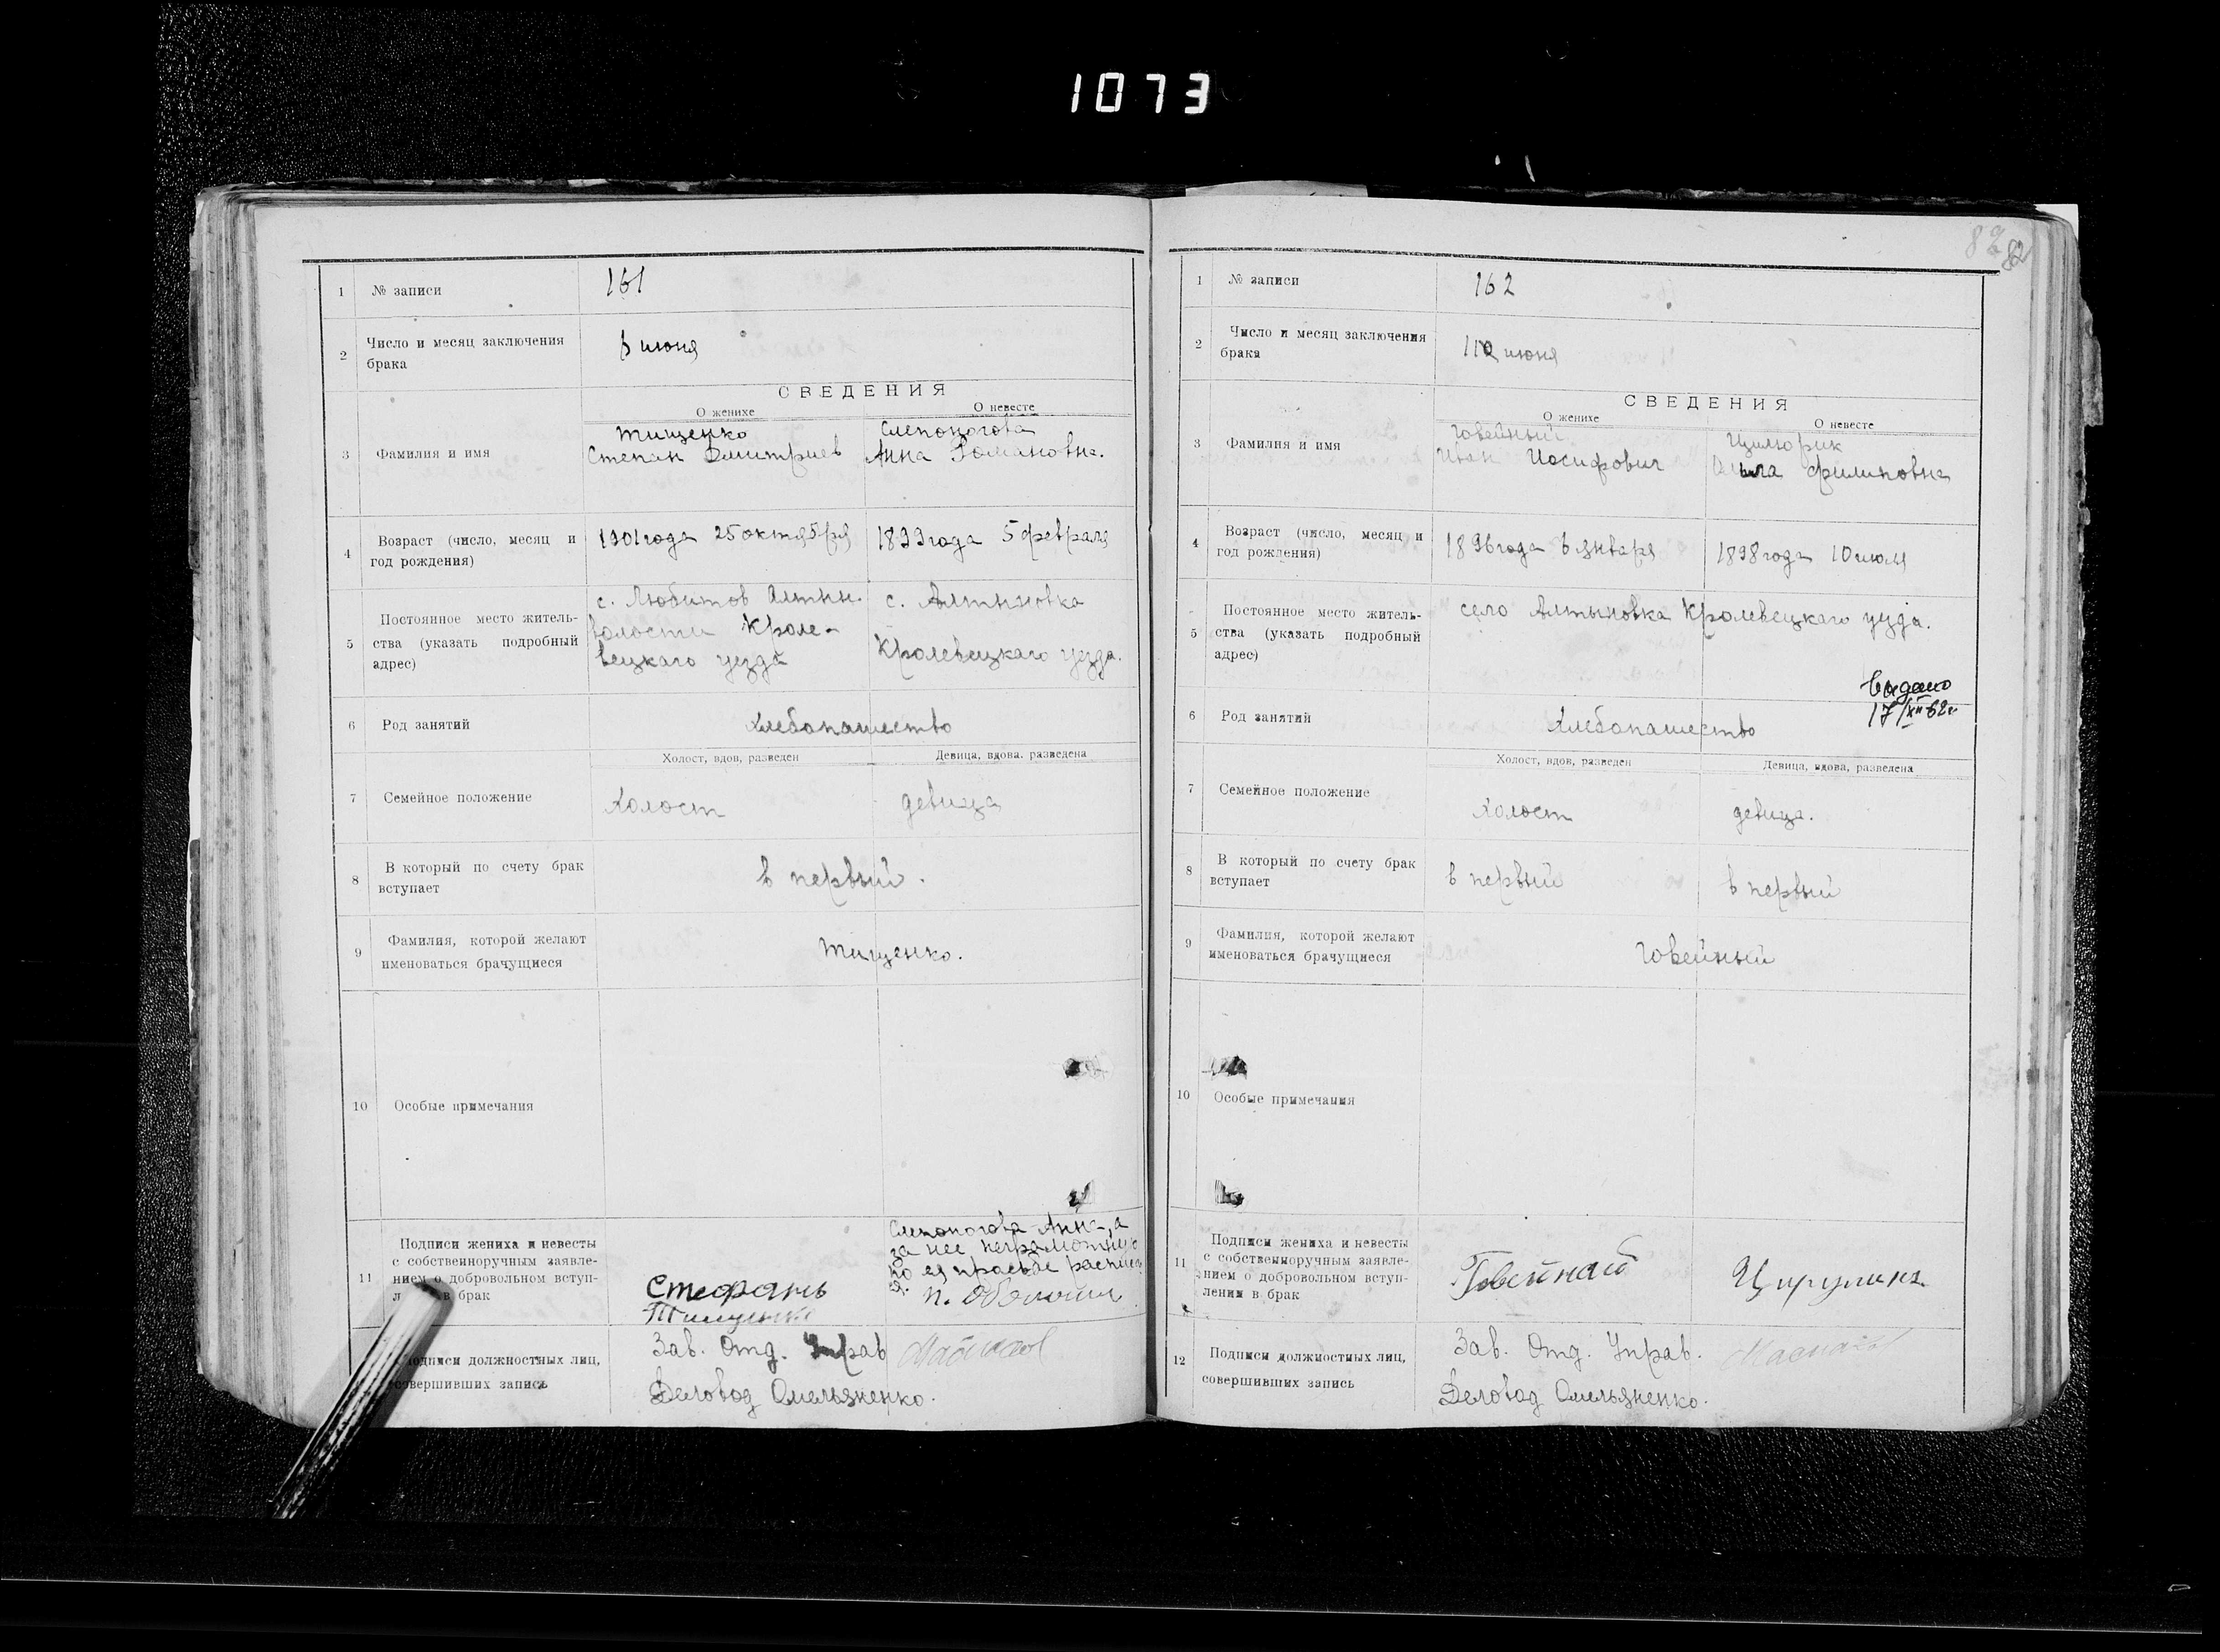 1073
1 № записи 161
2 Число и месяц заключения брака
июня
СВЕДЕНИЯ
О женихе О невесте
3 Фамилия и имя
Тищенко Слепоногова
Степан Дмитриев Анна Романовна.
4 Возраст (число, месяц и
год рождения)
1901 года 25 октября 1899 года 5 февраля
5 Постоянное место житель-
ства (указать подробный
адрес)
с. Любитов Алтын. с. Алтыновка
волости Кроле-
вецкаго уезда Кролевецкаго уезда.
6 Род занятий Хлебопашество
Холост, вдов, разведен Девица, вдова. разведена
7 Семейное положение Холост девица
8 В который по счету брак
вступает
в первый.
9 Фамилия, которой желают
именоваться брачущиеся
Тищенко.
10 Особые примечания
11 Подписи жениха и невесты
с собственноручным заявле-
нием о добровольном вступ-
в брак
Слепоногова Анна, а
за нее неграмотную
по ея просьбе расписал
Стефанъ
Тищенко
подписи должностных лиц,
совершивших запись
Зав. Отд. Управ
Деловод Омельяненко.
82 82
1 № записи 162
2 Число и месяц заключения
брака
июня
СВЕДЕНИЯ
О женихе О невесте
3 Фамилия и имя
Говейный Цилюрик
Иван Иосифович Ольга Филиповна
4 Возраст (число, месяц и
год рождения)
1896 года 6 января 1898 года 10 июля
5 Постоянное место житель-
ства (указать подробный
адрес)
село Алтыновка Кролевецкаго уезда.
Выдано
17/XII-62г
6 Род занятий Хлебопашество
Холост, вдов, разведен Девица, вдова, разведена
7 Семейное положение Холост девица.
8 В который по счету брак
вступает
в первый в первый
9 Фамилия, которой желают
именоваться брачущиеся
Говейный
10 Особые примечания
11 Подписи жениха и невесты
с собственноручным заявле-
нием о добровольном вступ-
лении в брак
Говейный
12 Подписи должностных лиц,
совершивших запись
Зав. Отд. Управ.
Деловод Омельяненко.